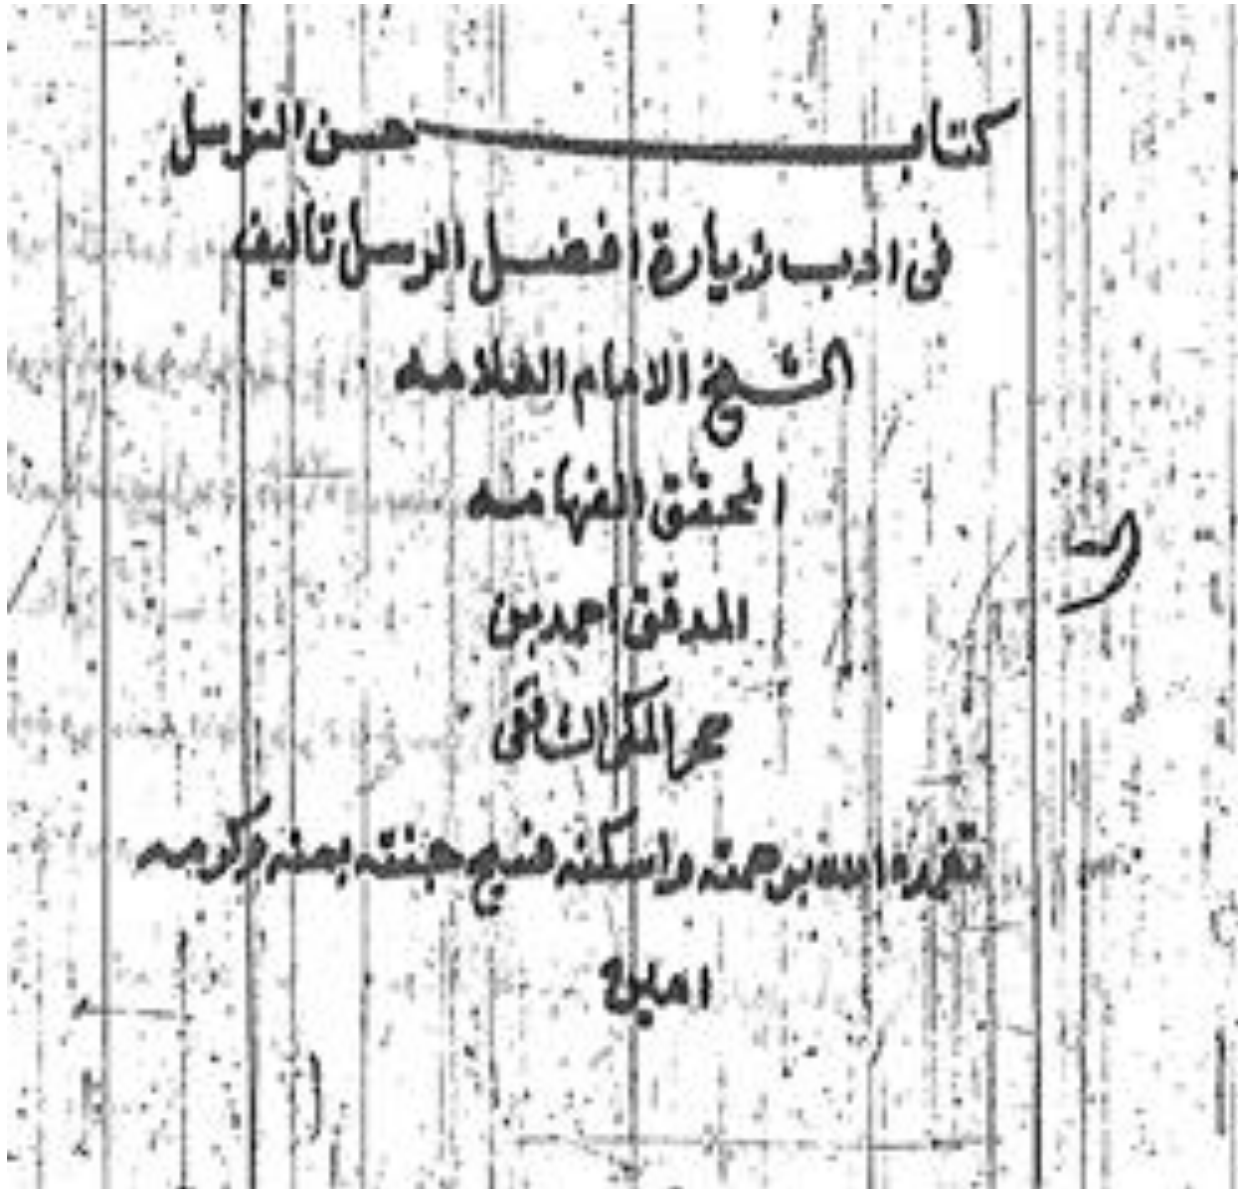 كتاب حسن التوسل
في ادب زيارة افضل الرسل تاليف
الشيخ الامام العلامه
المحقق الفهامه
المدقق احمد بن
حجر المكي الشافعي
تغمده الله برحمته واسكنه فسيح جنته بمنه وكرمه
امين